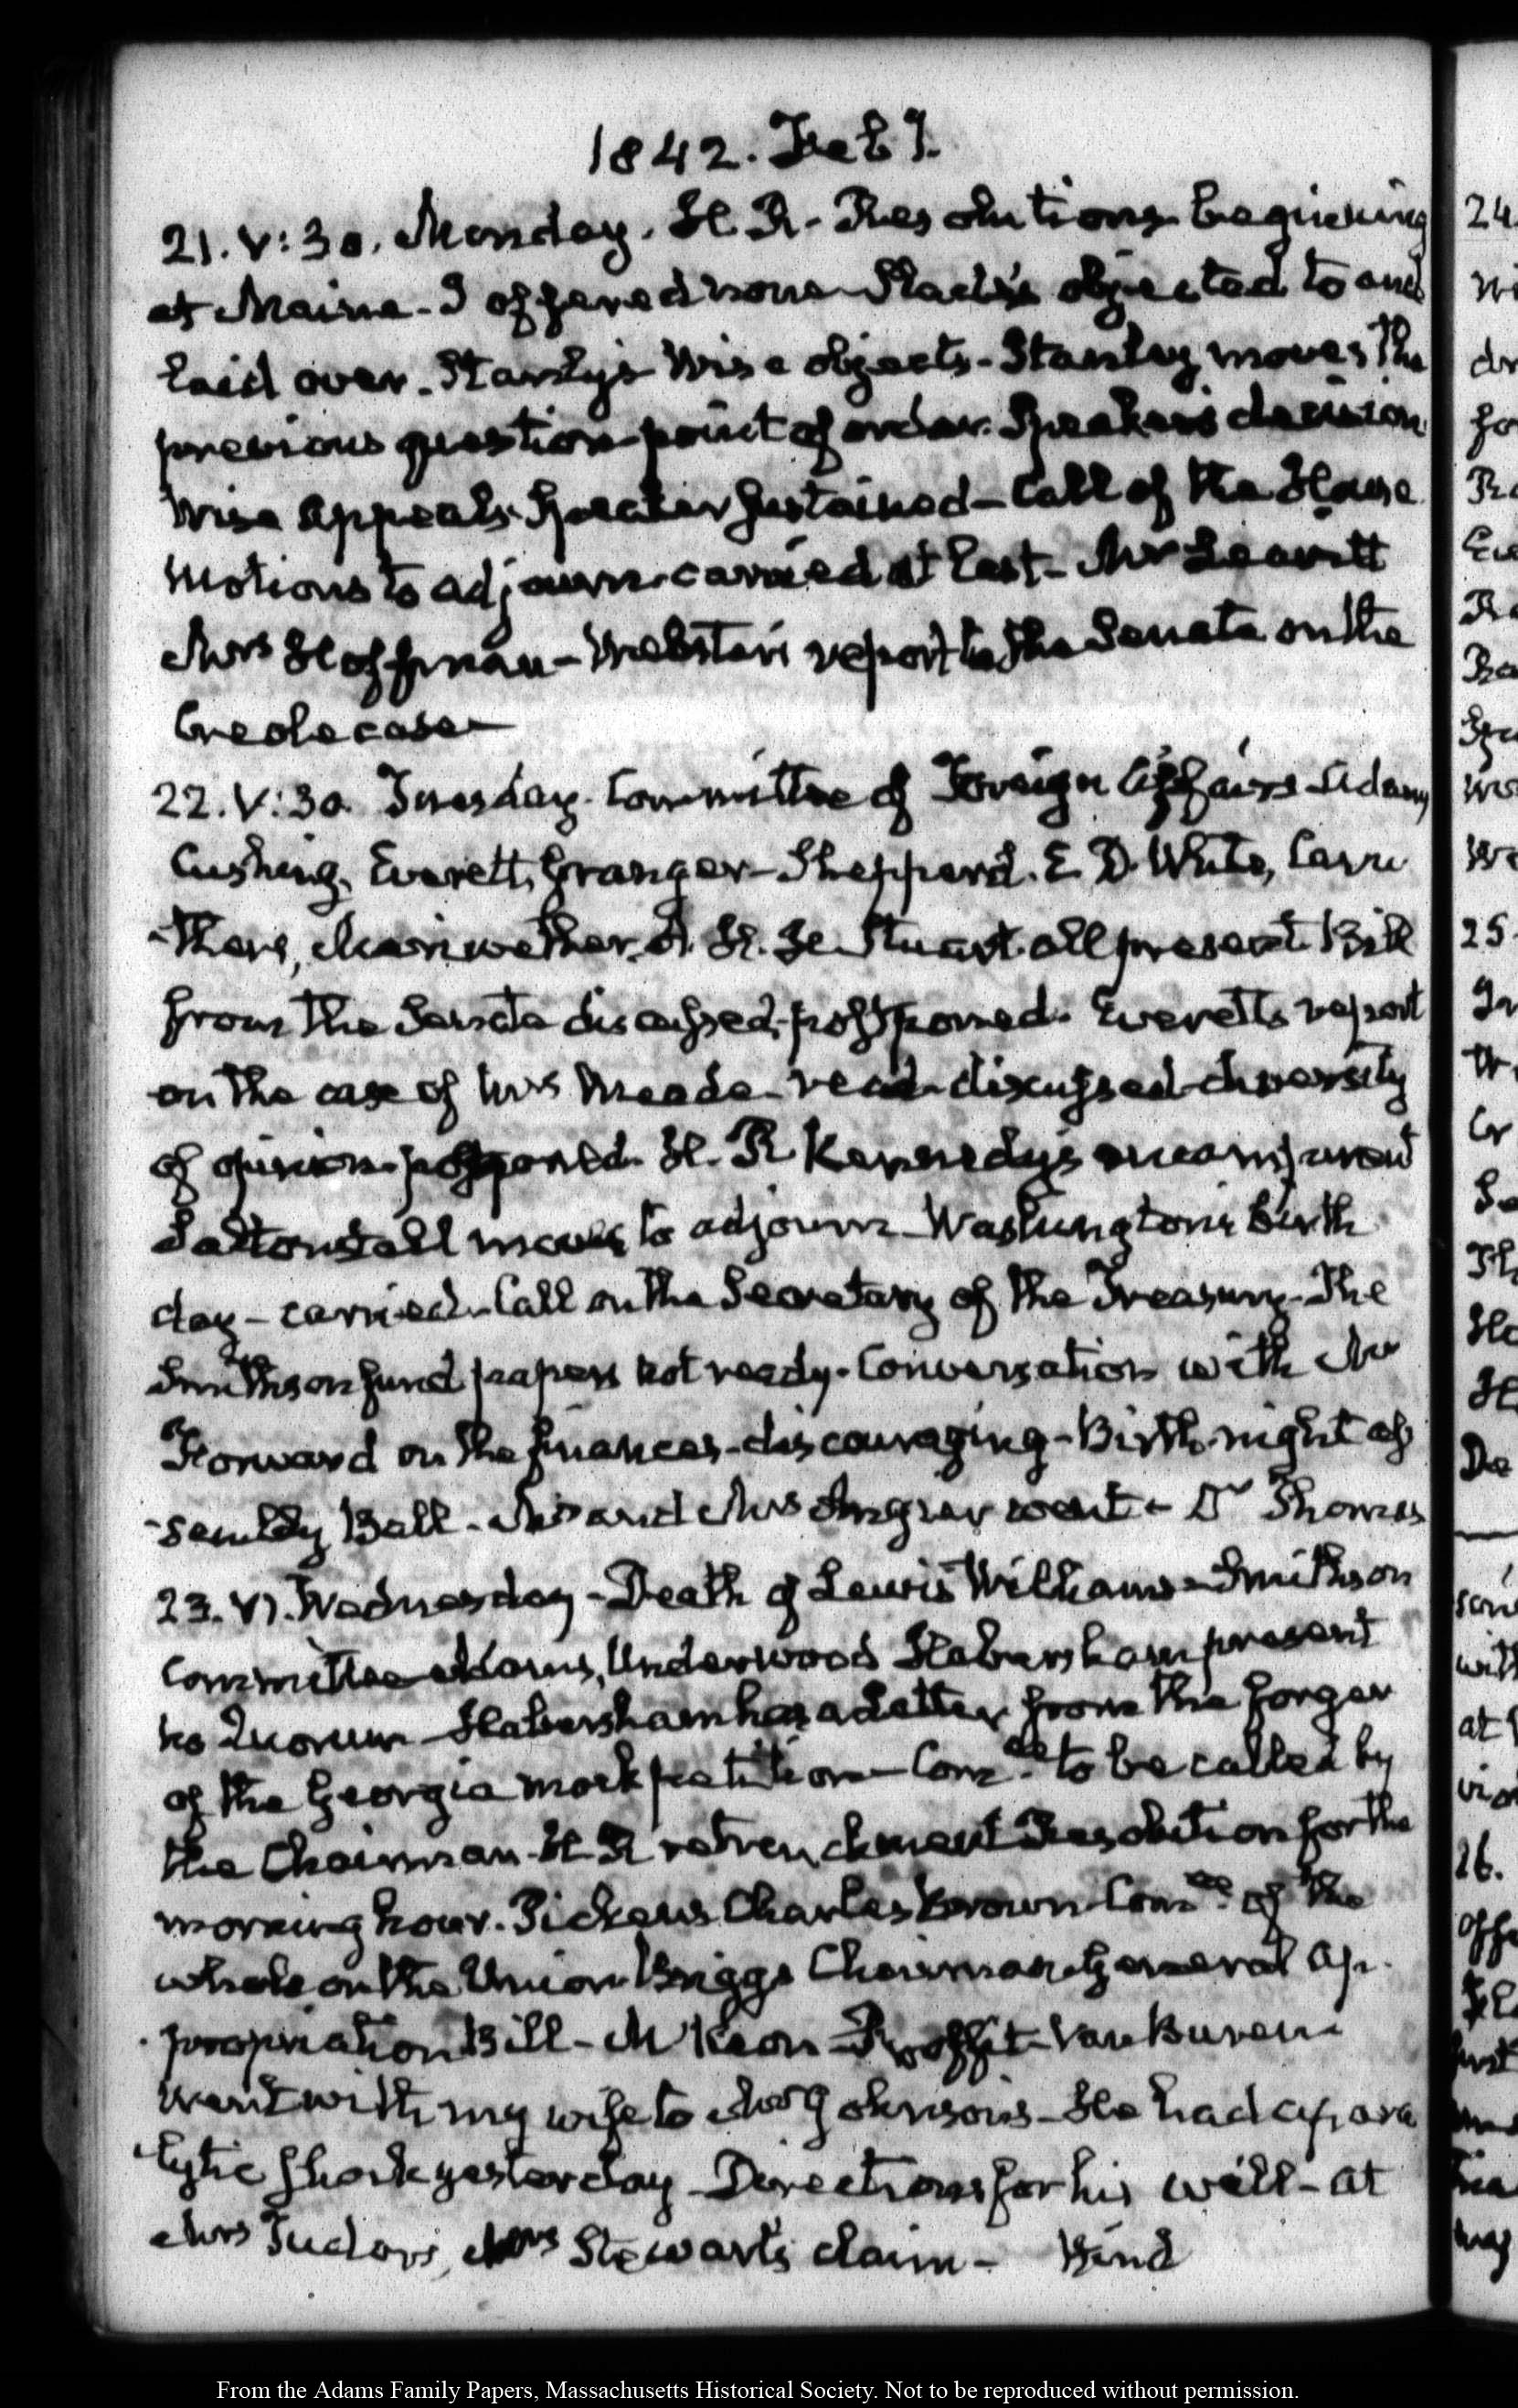 1842. Feb.y
21. V:30. Monday. H. R. Resolutions beginning
at Maine. I offered none Slade's objected to and
laid over. Stanly's Wise objects. Stanley moves the
previous question point of order. Speaker's decision
Wise appeals. Speaker sustained — Call of the House
Motions to adjourn. carried at last. Mr Leavitt
Mrs Hoffman — Webster's report to the Senate on the
Creole case
22. V:30. Tuesday. Committee of Foreign Affairs Adams
Cushing. Everett, Granger — Shepperd. E. D. White, Carru
-thers, Meriwether. A. H. H. Stuart. all present Bill
from the Senate discussed, postponed. Everett's report
on the case of Mrs Meade — read discussed diversity
of opinion. postponed. H. R. Kennedy's
Saltonstall moves to adjourn Washington's birth
day — carried. Call on the Secretary of the Treasury. The
Smithson fund papers not ready. Conversation with Mr
Forward on the finances — discouraging — Birth-night as
-sembly Ball. Mr and Mrs Angier went — Dr Thomas
23. VI. Wednesday — Death of Lewis Williams — Smithson
Committee Adams, Underwood Habersham present
no Quorum Habersham has a Letter from the forger
of the Georgia mock petition — Comee. to be called by
the Chairman. H. R. retrenchment Resolution for the
morning hour. Pickens Charles Brown. Comee. of the
whole on the Union Briggs Chairman. General Ap-
-propriation Bill — McKeon — Proffit — Van Buren
Went with my wife to Mr Johnson's — He had a para
-lytic shock yesterday — Directions for his will — at
Mrs Tudor's, Mrs Stewart's claim — Wind
24
25
26.
From the Adams Family Papers, Massachusetts Historical Society. Not to be reproduced without permission.